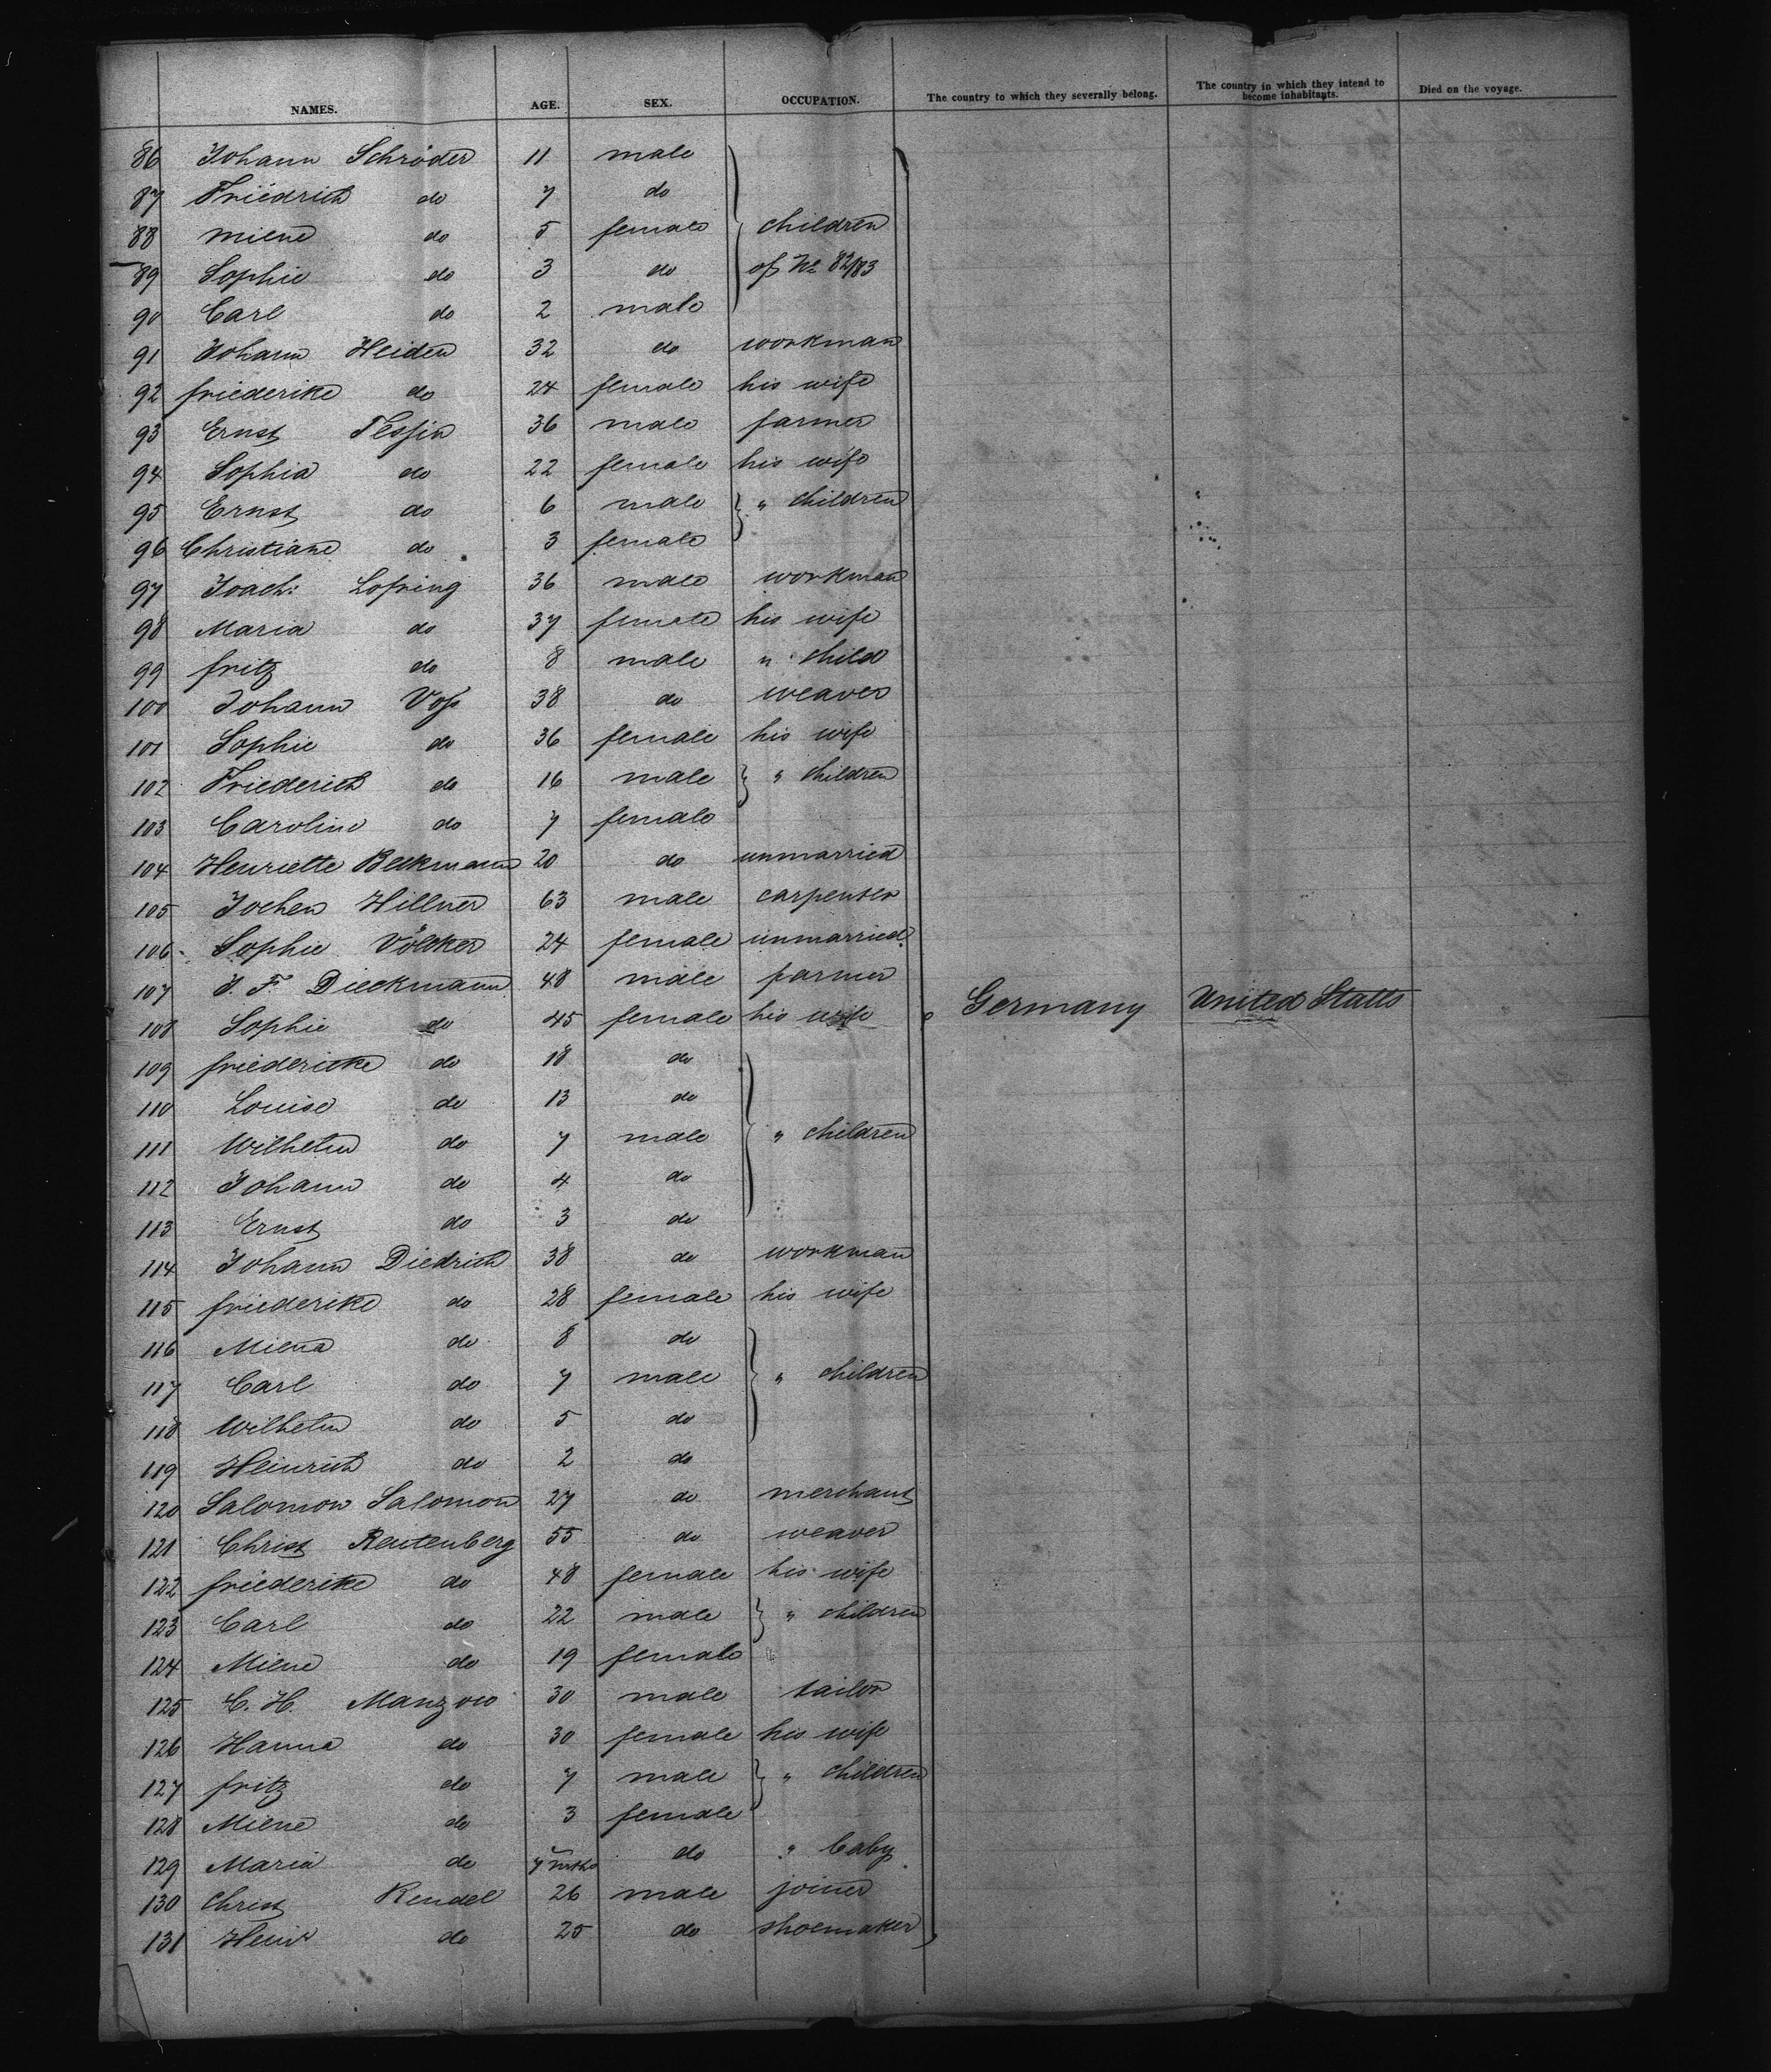 NAMES. AGE. SEX. OCCUPATION. The country to which they severally belong. The country in which they intend to become inhabitants. Died on the voyage.
86 Johann Schröder 11 male
87 Friedrich do 7 do
88 Miene do 5 female children
89 Sophie do 3 do of No 82/83
90 Carl do 2 male
91 Johann Heiden 32 do workman
92 friederike do 24 female his wife
93 Ernst Tessin 36 male farmer
94 Sophia do 22 female his wife
95 Ernst do 6 male " children
96 Christiane do 3 female
97 Joach: 36 male workman
98 Maria do 37 female his wife
99 fritz do 8 male " child
100 Johann Voss 38 do weaver
101 Sophie do 36 female his wife
102 Friederich do 16 male " children
103 Caroline do 7 female
104 Henriette Beckmann 20 do unmarried
105 Jochen Hillner 63 male carpenter
106 Sophie Völcker 24 female unmarried
107 J. F. Dieckmann 48 male farmer
108 Sophie do 45 female his wife Germany United States
109 friedericke do 18 do
110 Louise do 13 do
111 Wilhelm do 7 male " children
112 Johann do 4 do
113 Ernst do 3 do
114 Johann Diedrich 38 do workman
115 friederike do 28 female his wife
116 Miena do 8 do
117 Carl do 7 male " children
118 Wilhelm do 5 do
119 Heinrich do 2 do
120 Salomon Salomon 27 do merchant
121 Christ Reutenberg 55 do weaver
122 friederike do 48 female his wife
123 Carl do 22 male " children
124 Miene do 19 female
125 C. H. Manzow 30 male tailor
126 Hanna do 30 female his wife
127 fritz do 7 male " children
128 Miene do 3 female
129 Maria do 7 mths do " baby
130 Christ Rendel 26 male joiner
131 Heinr do 25 do shoemaker